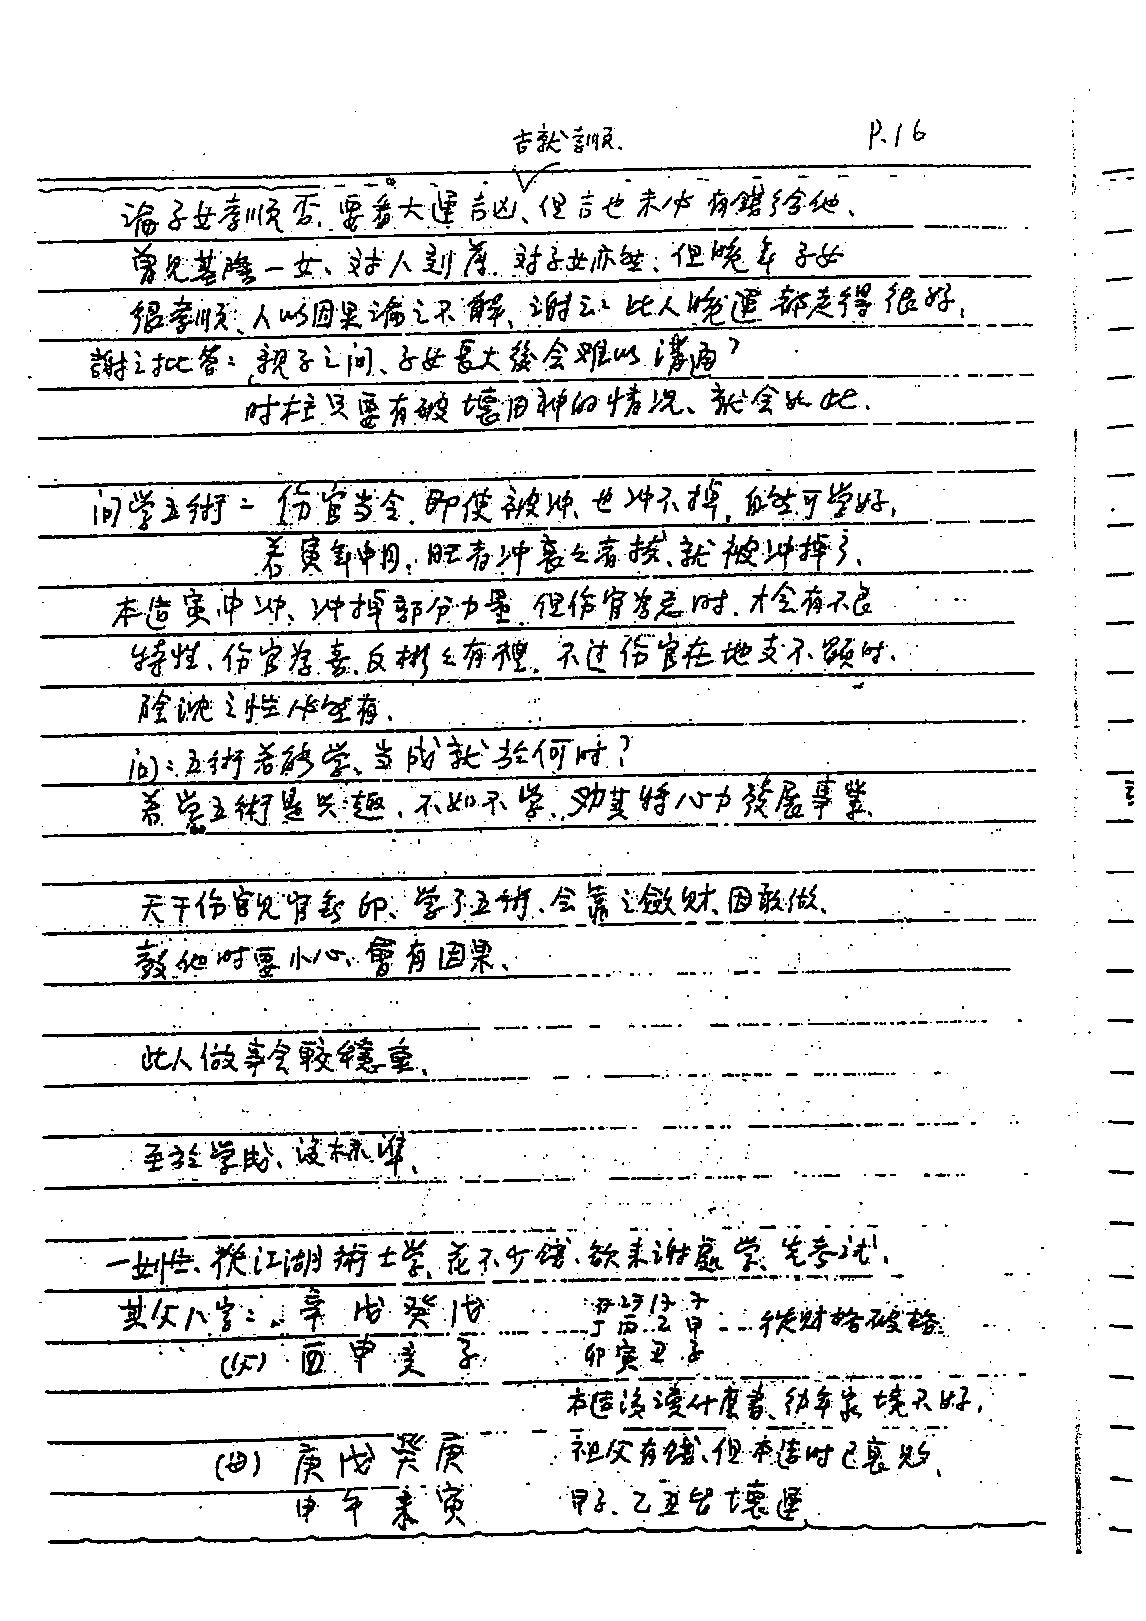 吉就孝順.
P.16
論子女孝順否、要看大運吉凶、但吉也未必有錢給他、
曾見基隆一女、對人刻薄、对子女亦然、但晚年子女
很孝順、人以因果論之不解、謝云:此人晚運都走得很好、
謝之批答:親子之间、子女長大後会难以溝通?
时柱只要有破壞用神的情況、就会如此.
问学五術= 伤官当令、即使被冲、也冲不掉、自然可学好、
若寅年申月、旺者冲衰之者拔、就被冲掉了、
本造寅申冲、冲掉部分力量、但伤官為忌时、才会有不良
特性、伤官為喜、反彬彬有禮、不过伤官在地支不顕时、
陰沈之性必然有.
问:五術若能学、当成就於何时?
若学五術是兴趣、不如不学、劝其將心力發展事業、
天干伤官見官無印、学了五術、会靠之斂财、因敢做、
教他时要小心、會有因果、
此人做事会較穩重、
至於学成、没标準、
一女性、從江湖術士学、花不少錢、欲来謝處学、先考試、
其父八字: 辛戊癸戊
丁丙乙甲 ... 從财格破格
(父) 酉申亥子
卯寅丑子
本造没读什麼書、幼年家境不好、
(母) 庚戊癸庚
祖父有錢、但本造时已衰败、
申午未寅
甲子、乙丑皆壞運